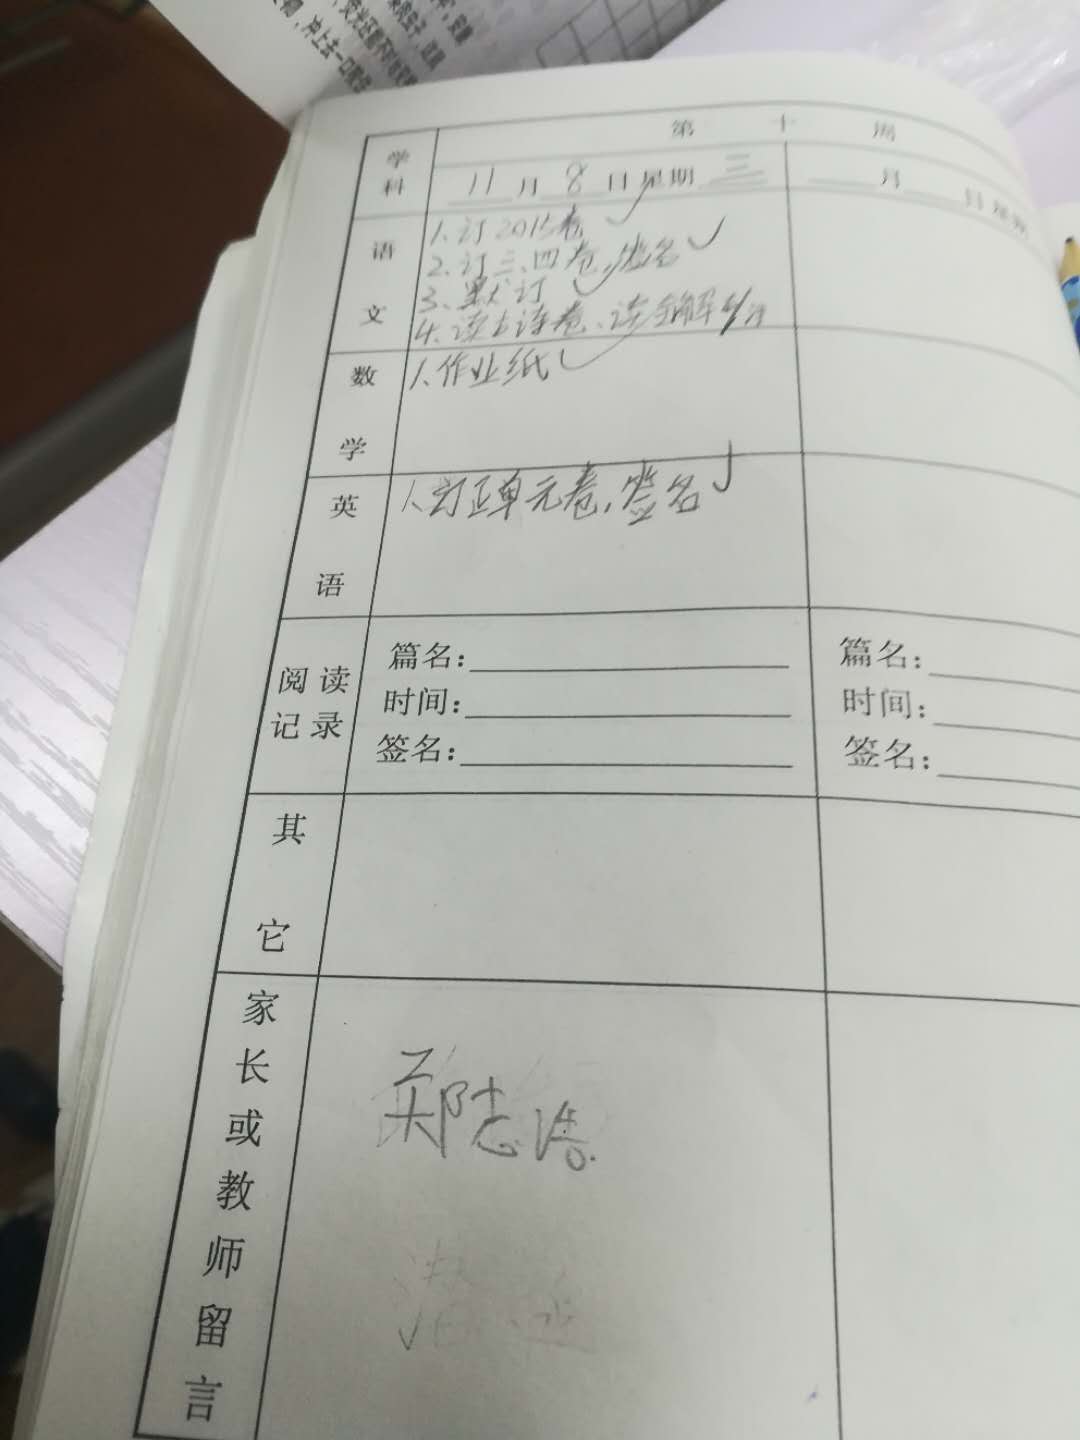 学科
第 十 周
11月8日星期三
月 日 星期
语文
1.订2015卷
2.订三、四卷,签名
3.默订
4.读古诗卷、读全解
数学
1.作业纸
英语
1.订正单元卷,签名
阅读记录
篇名:
时间:
签名:
篇名:
时间:
签名:
其它
家长或教师留言